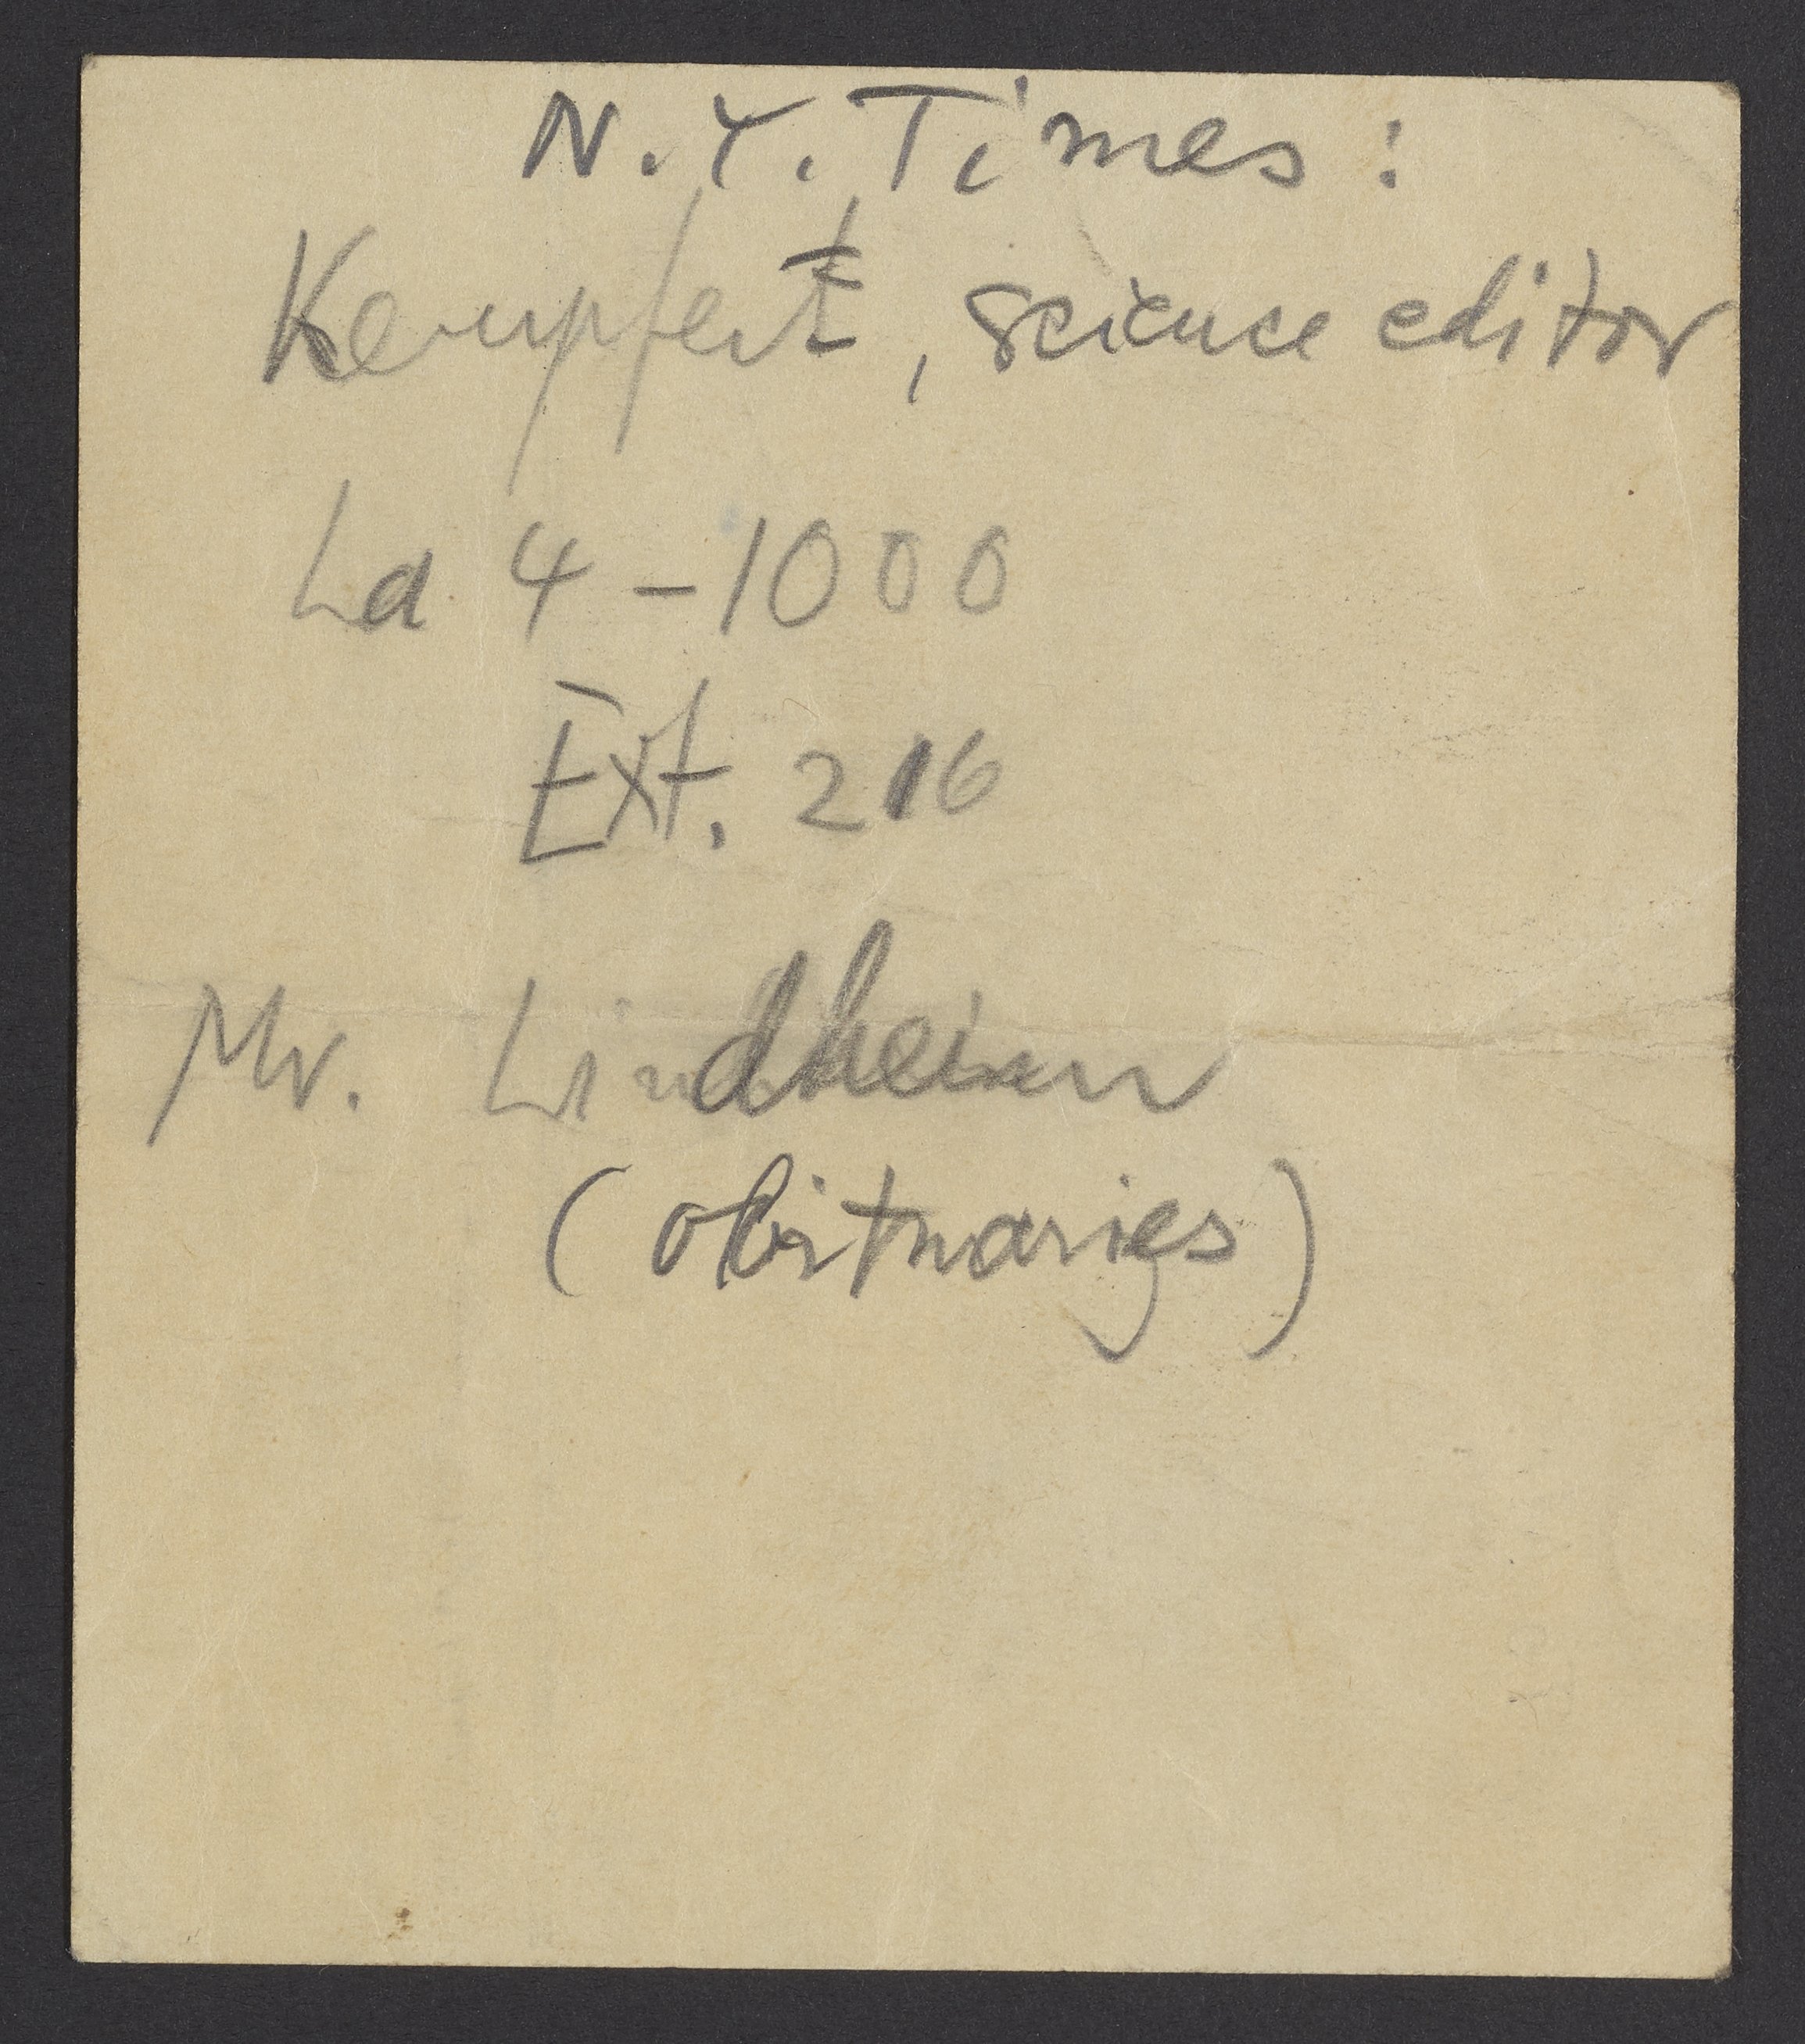 N.Y. Times:
Kempfert, science editor
La 4-1000
Ext. 216
Mr. Lindheim
(obituaries)